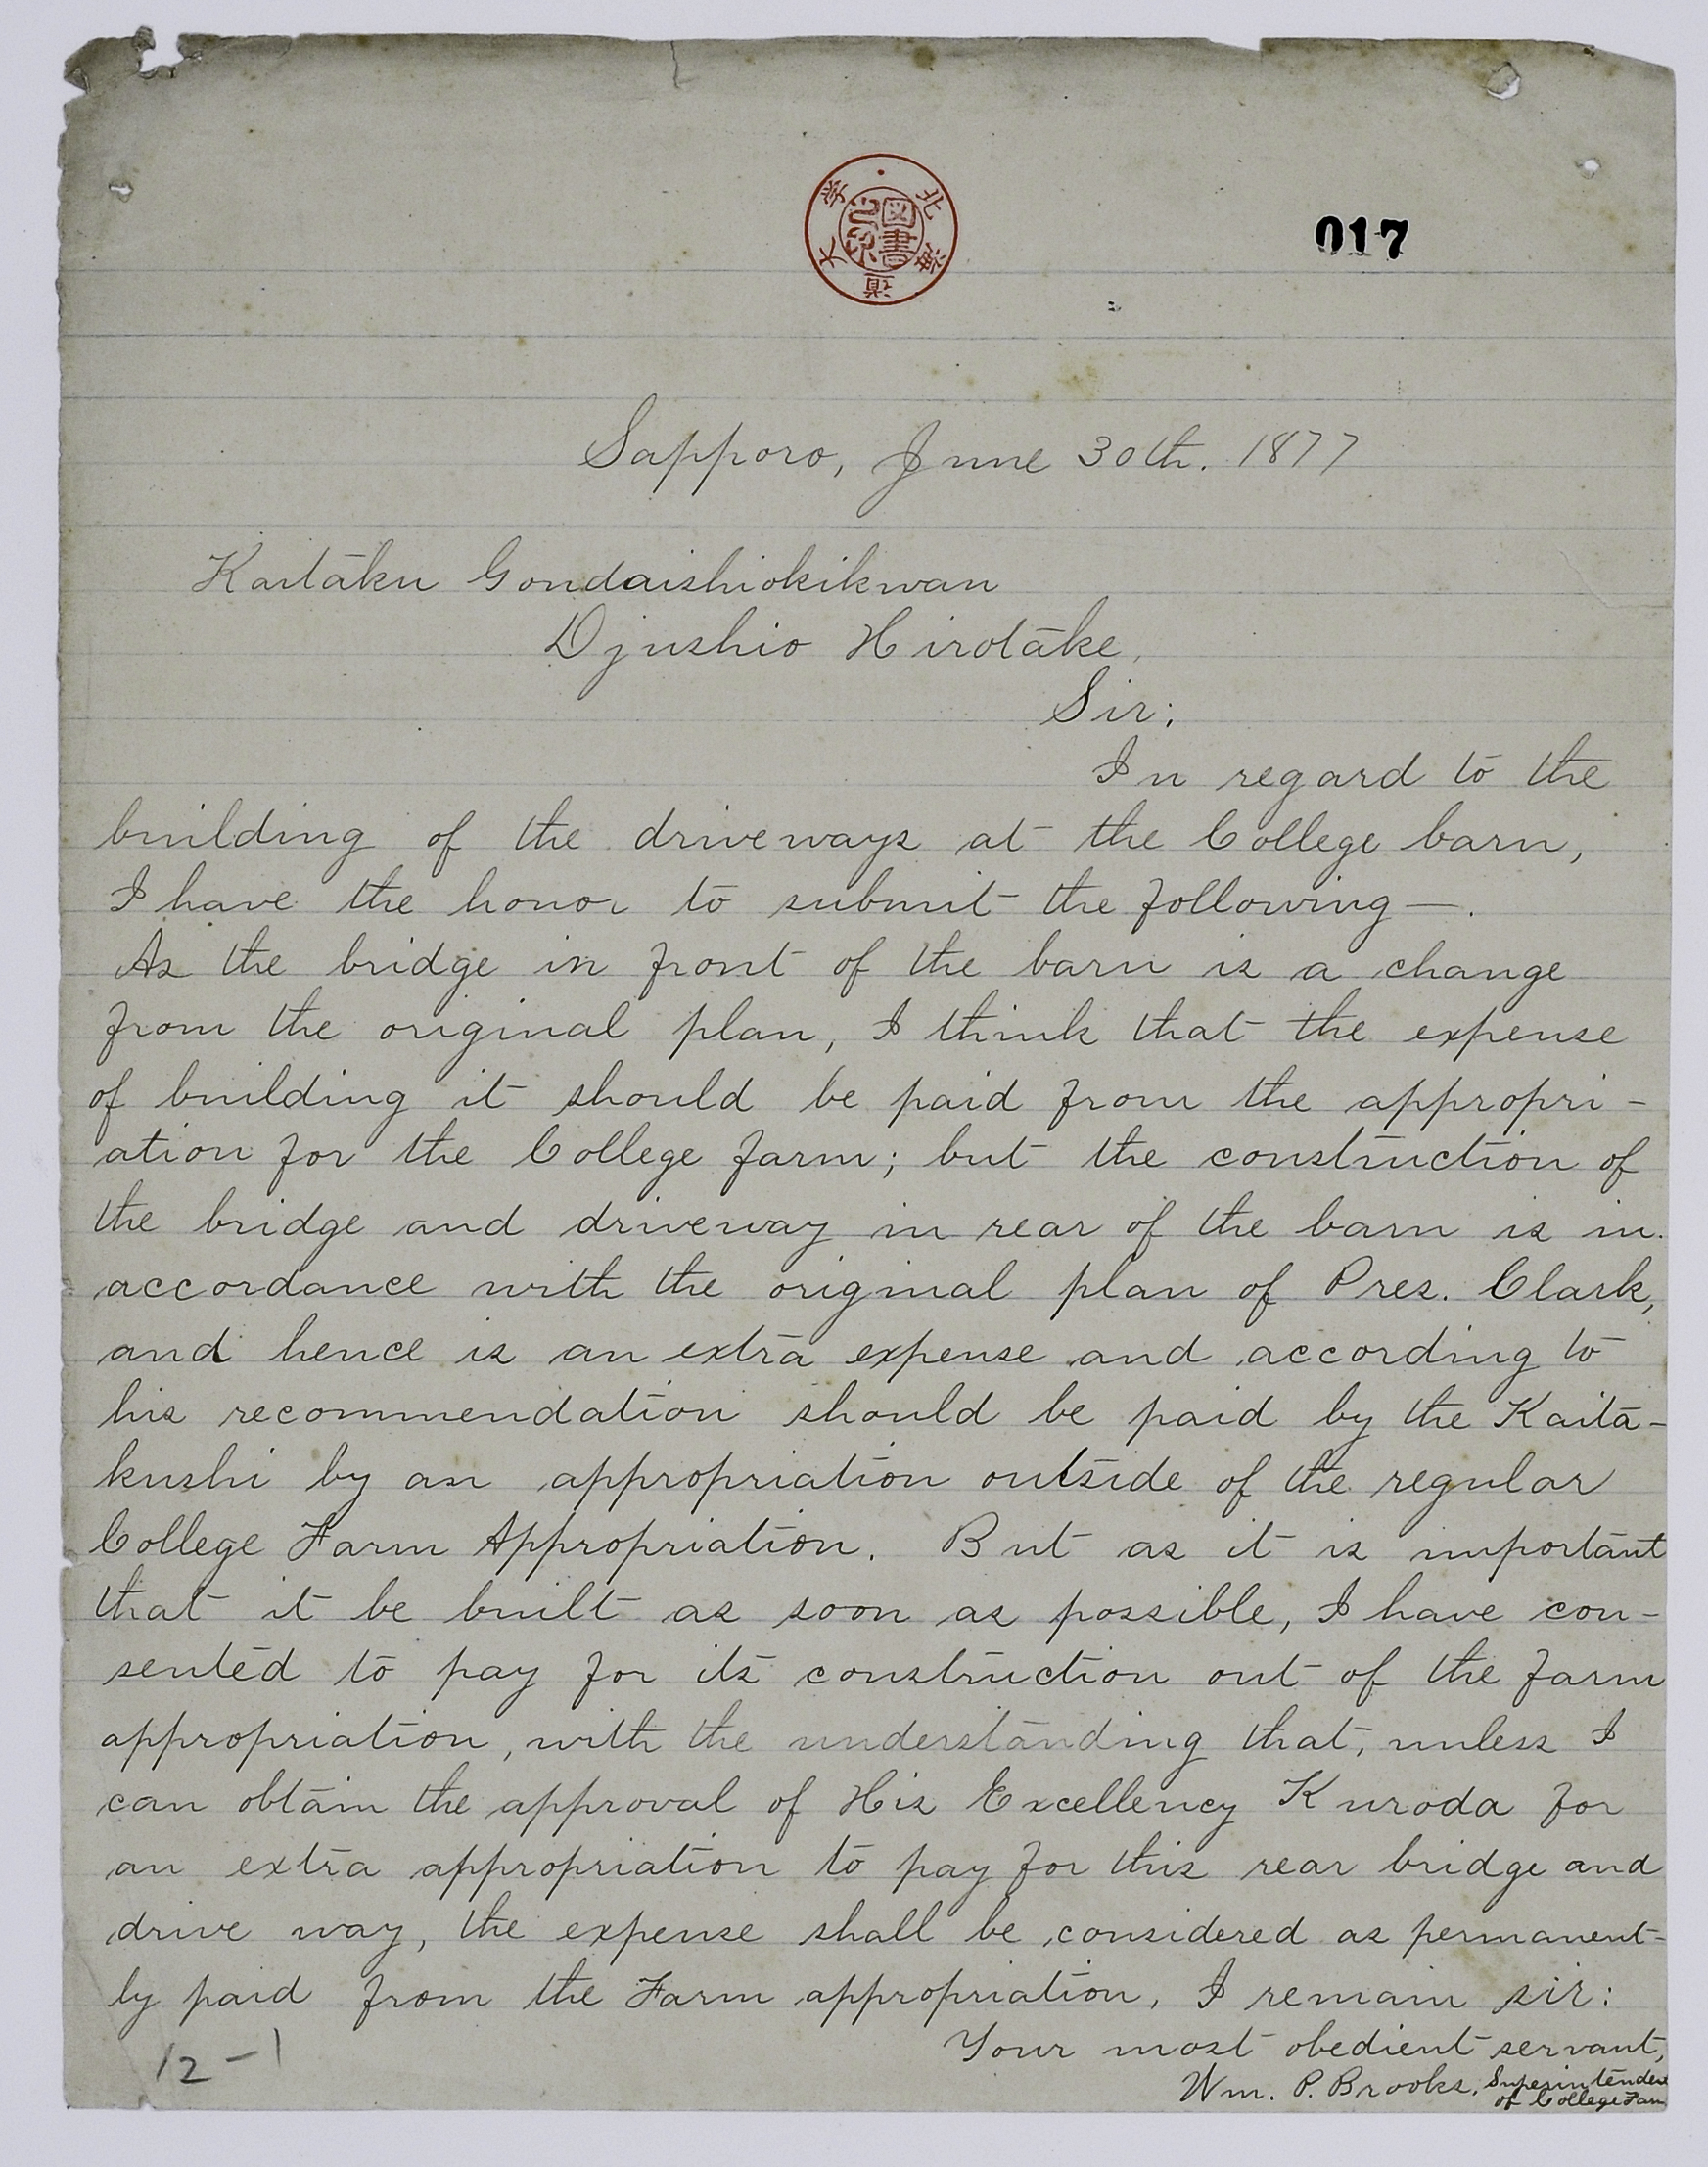 北海道大学
図書
017
Sapporo, June 30th. 1877
Kaitaku Gondaishiokikwan
Djushio Hirotake,
Sir;
In regard to the
building of the driveways at the College barn,
I have the honor to submit the following—.
As the bridge in front of the barn is a change
from the original plan, I think that the expense
of building it should be paid from the appropri-
ation for the College farm; but the construction of
the bridge and driveway in rear of the barn is in
accordance with the original plan of Pres. Clark,
and hence is an extra expense and according to
his recommendation should be paid by the Kaita-
kushi by an appropriation outside of the regular
College Farm Appropriation. But as it is important
that it be built as soon as possible, I have con-
sented to pay for its construction out of the farm
appropriation, with the understanding that, unless I
can obtain the approval of His Excellency Kuroda for
an extra appropriation to pay for this rear bridge and
drive way, the expense shall be considered as permanent-
ly paid from the Farm appropriation, I remain sir:
Your most obedient servant,
Wm. P. Brooks, Superintenden
of College Farm
12-1